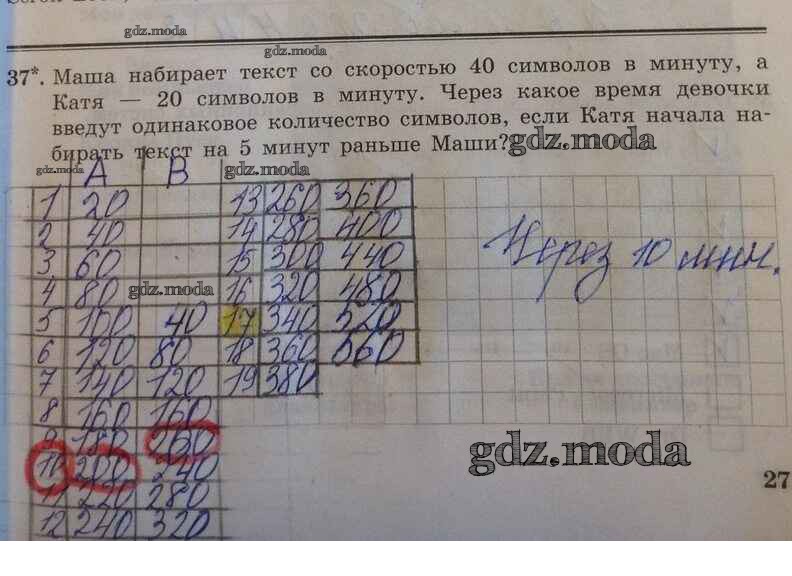 gdz.moda
gdz.moda
37*. Маша набирает текст со скоростью 40 символов в минуту, а
Катя — 20 символов в минуту. Через какое время девочки
введут одинаковое количество символов, если Катя начала на-
бирать текст на 5 минут раньше Маши? gdz.moda
gdz.moda A B gdz.moda
1 20 13 260 360
2 40 14 280 400
3 60 15 300 440
4 80 gdz.moda 16 320 480
5 100 40 17 340 520
6 120 80 18 360 560
7 140 120 19 380
Через 10 мин.
8 160 160
9 180 200
10 200 240
gdz.moda
11 220 280
27
12 240 320